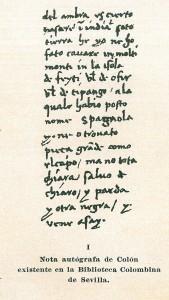 del ambra es cierto
nasære i india soto
tierra he yo ne ho
fato cavare in molti
monte in la isola
de feyti vel de ofir
vel de cipango, a la
quale habio posto
nome spagnola
y ne o trovato
pieça grāde como
el capo, ma no tota
chiara, salvo de
chiaro, y parda
y otra negra, y
vene asay.
I
Nota autógrafa de Colón
existente en la Biblioteca Colombina
de Sevilla.